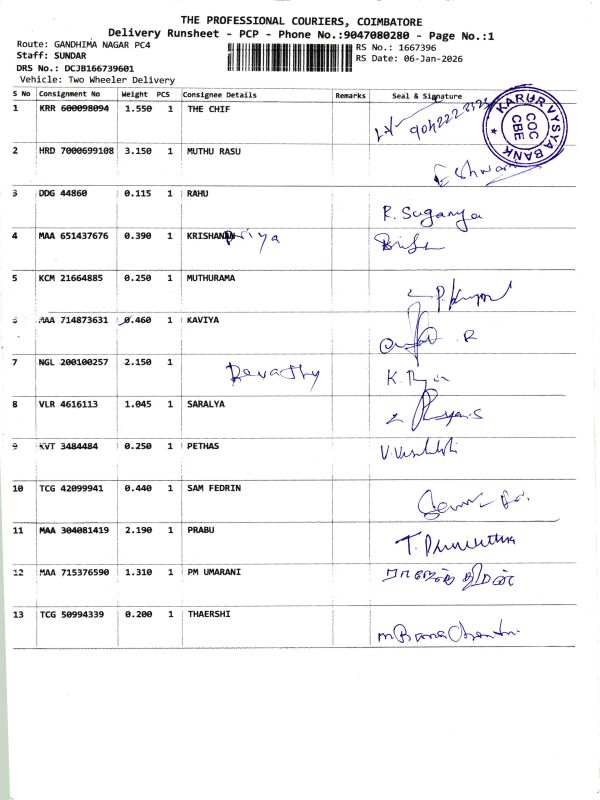 THE PROFESSIONAL COURIERS, COIMBATORE
Delivery Runsheet - PCP - Phone No.:9047080280 - Page No.:1
Route: GANDHIMA NAGAR PC4
RS No.: 1667396
Staff: SUNDAR
RS Date: 06-Jan-2026
DRS No.: DCJB166739601
Vehicle: Two Wheeler Delivery
S No Consignment No Weight PCS Consignee Details Remarks Seal & Signature
1 KRR 600098094 1.550 1 THE CHIF
KARUR VYSYA BANK
COC
CBE
2 HRD 7000699108 3.150 1 MUTHU RASU
Eshwar
3 DDG 44860 0.115 1 RAHU
R. Suganya
4 MAA 651437676 0.390 1 KRISHANAN Priya
5 KCM 21664885 0.250 1 MUTHURAMA
6 MAA 714873631 0.460 1 KAVIYA
7 NGL 200100257 2.150 1
Revathy
8 VLR 4616113 1.045 1 SARALYA
9 KVT 3484484 0.250 1 PETHAS
10 TCG 42099941 0.440 1 SAM FEDRIN
11 MAA 304081419 2.190 1 PRABU
12 MAA 715376590 1.310 1 PM UMARANI
13 TCG 50994339 0.200 1 THAERSHI